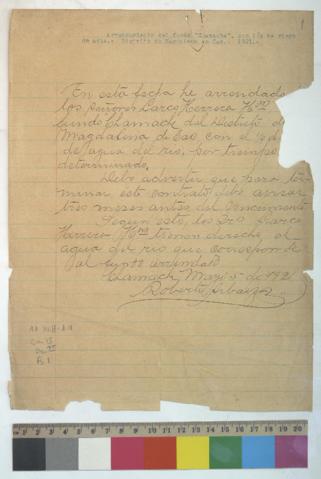 Arrendamiento del fundo "Chamach", con pie de riego
de acta. Distrito de Magdalena de Cao. 1921.
1
En esta fecha he arrendado
los Señores Larco Herrera Hnos
fundo Chamach del Distrito de
Magdalena de Cao con el
de agua de río, por tiempo
determinado.
Debo advertir que para ter
minar este contrato debe avisar
tres meses antes del vencimiento
Según esto, los Srs Larco
Herrera Hnos tienen derecho al
agua del río que corresponde
al fundo arrendado
Chamach, Mayo 5 de 1921
Roberto
P. 1
1 2 3 4 5 6 7 8 9 10 11 12 13 14 15 16 17 18 19 20